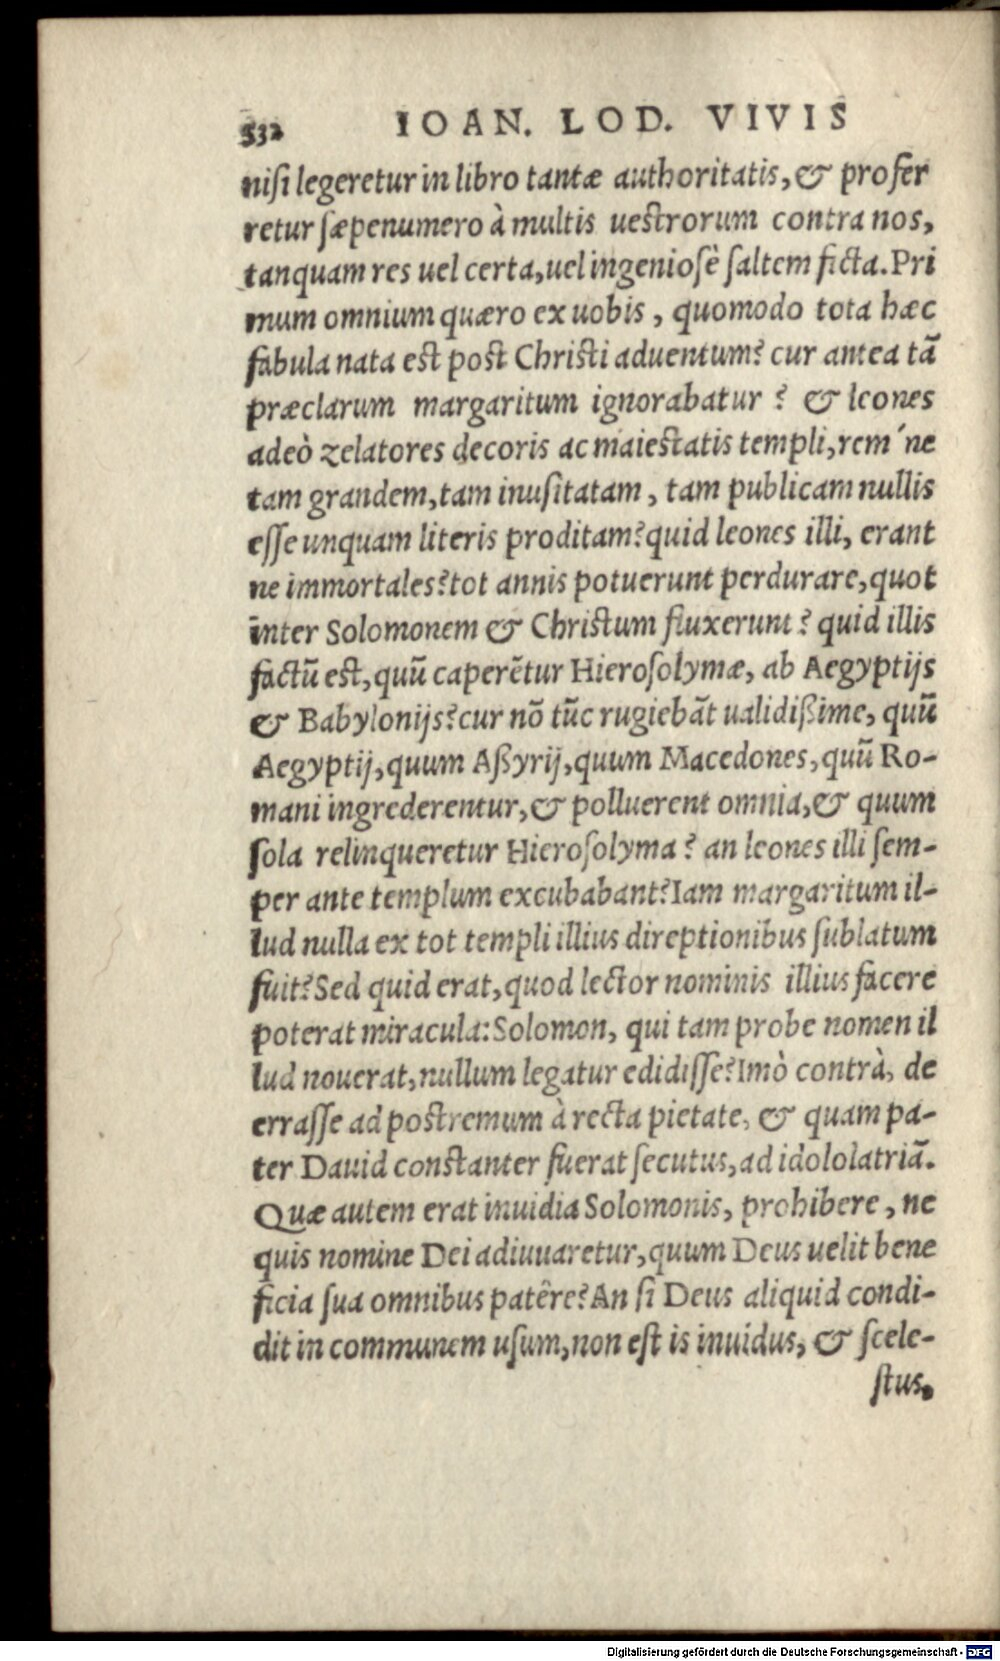 532 IOAN. LOD. VIVIS
niſi legeretur in libro tantæ authoritatis, & profer
retur ſæpenumero à multis ueſtrorum contra nos,
tanquam res uel certa, uel ingenioſè ſaltem ficta. Pri
mum omnium quæro ex uobis, quomodo tota hæc
fabula nata eſt poſt Chriſti aduentum? cur antea tã
præclarum margaritum ignorabatur? & leones
adeò zelatores decoris ac maieſtatis templi, rem´ne
tam grandem, tam inuſitatam, tam publicam nullis
eſſe unquam literis proditam? quid leones illi, erant
ne immortales? tot annis potuerunt perdurare, quot
inter Solomonem & Chriſtum fluxerunt? quid illis
factũ eſt, quũ caperẽtur Hieroſolymæ, ab Aegyptijs
& Babylonijs? cur nõ tũc rugiebãt ualidißime, quũ
Aegyptij, quum Aßyrij, quum Macedones, quũ Ro-
mani ingrederentur, & polluerent omnia, & quum
ſola relinqueretur Hieroſolyma? an leones illi ſem-
per ante templum excubabant? Iam margaritum il-
lud nulla ex tot templi illius direptionibus ſublatum
fuit? Sed quid erat, quod lector nominis illius facere
poterat miracula: Solomon, qui tam probe nomen il
lud nouerat, nullum legatur edidiſſe? Imò contrà, de
erraſſe ad poſtremum à recta pietate, & quam pa-
ter Dauid conſtanter fuerat ſecutus, ad idololatriã.
Quæ autem erat inuidia Solomonis, prohibere, ne
quis nomine Dei adiuuaretur, quum Deus uelit bene
ficia ſua omnibus patêre? An ſi Deus aliquid condi-
dit in communem uſum, non eſt is inuidus, & ſcele-
ſtus,
Digitalisierung gefördert durch die Deutsche Forschungsgemeinschaft - DFG